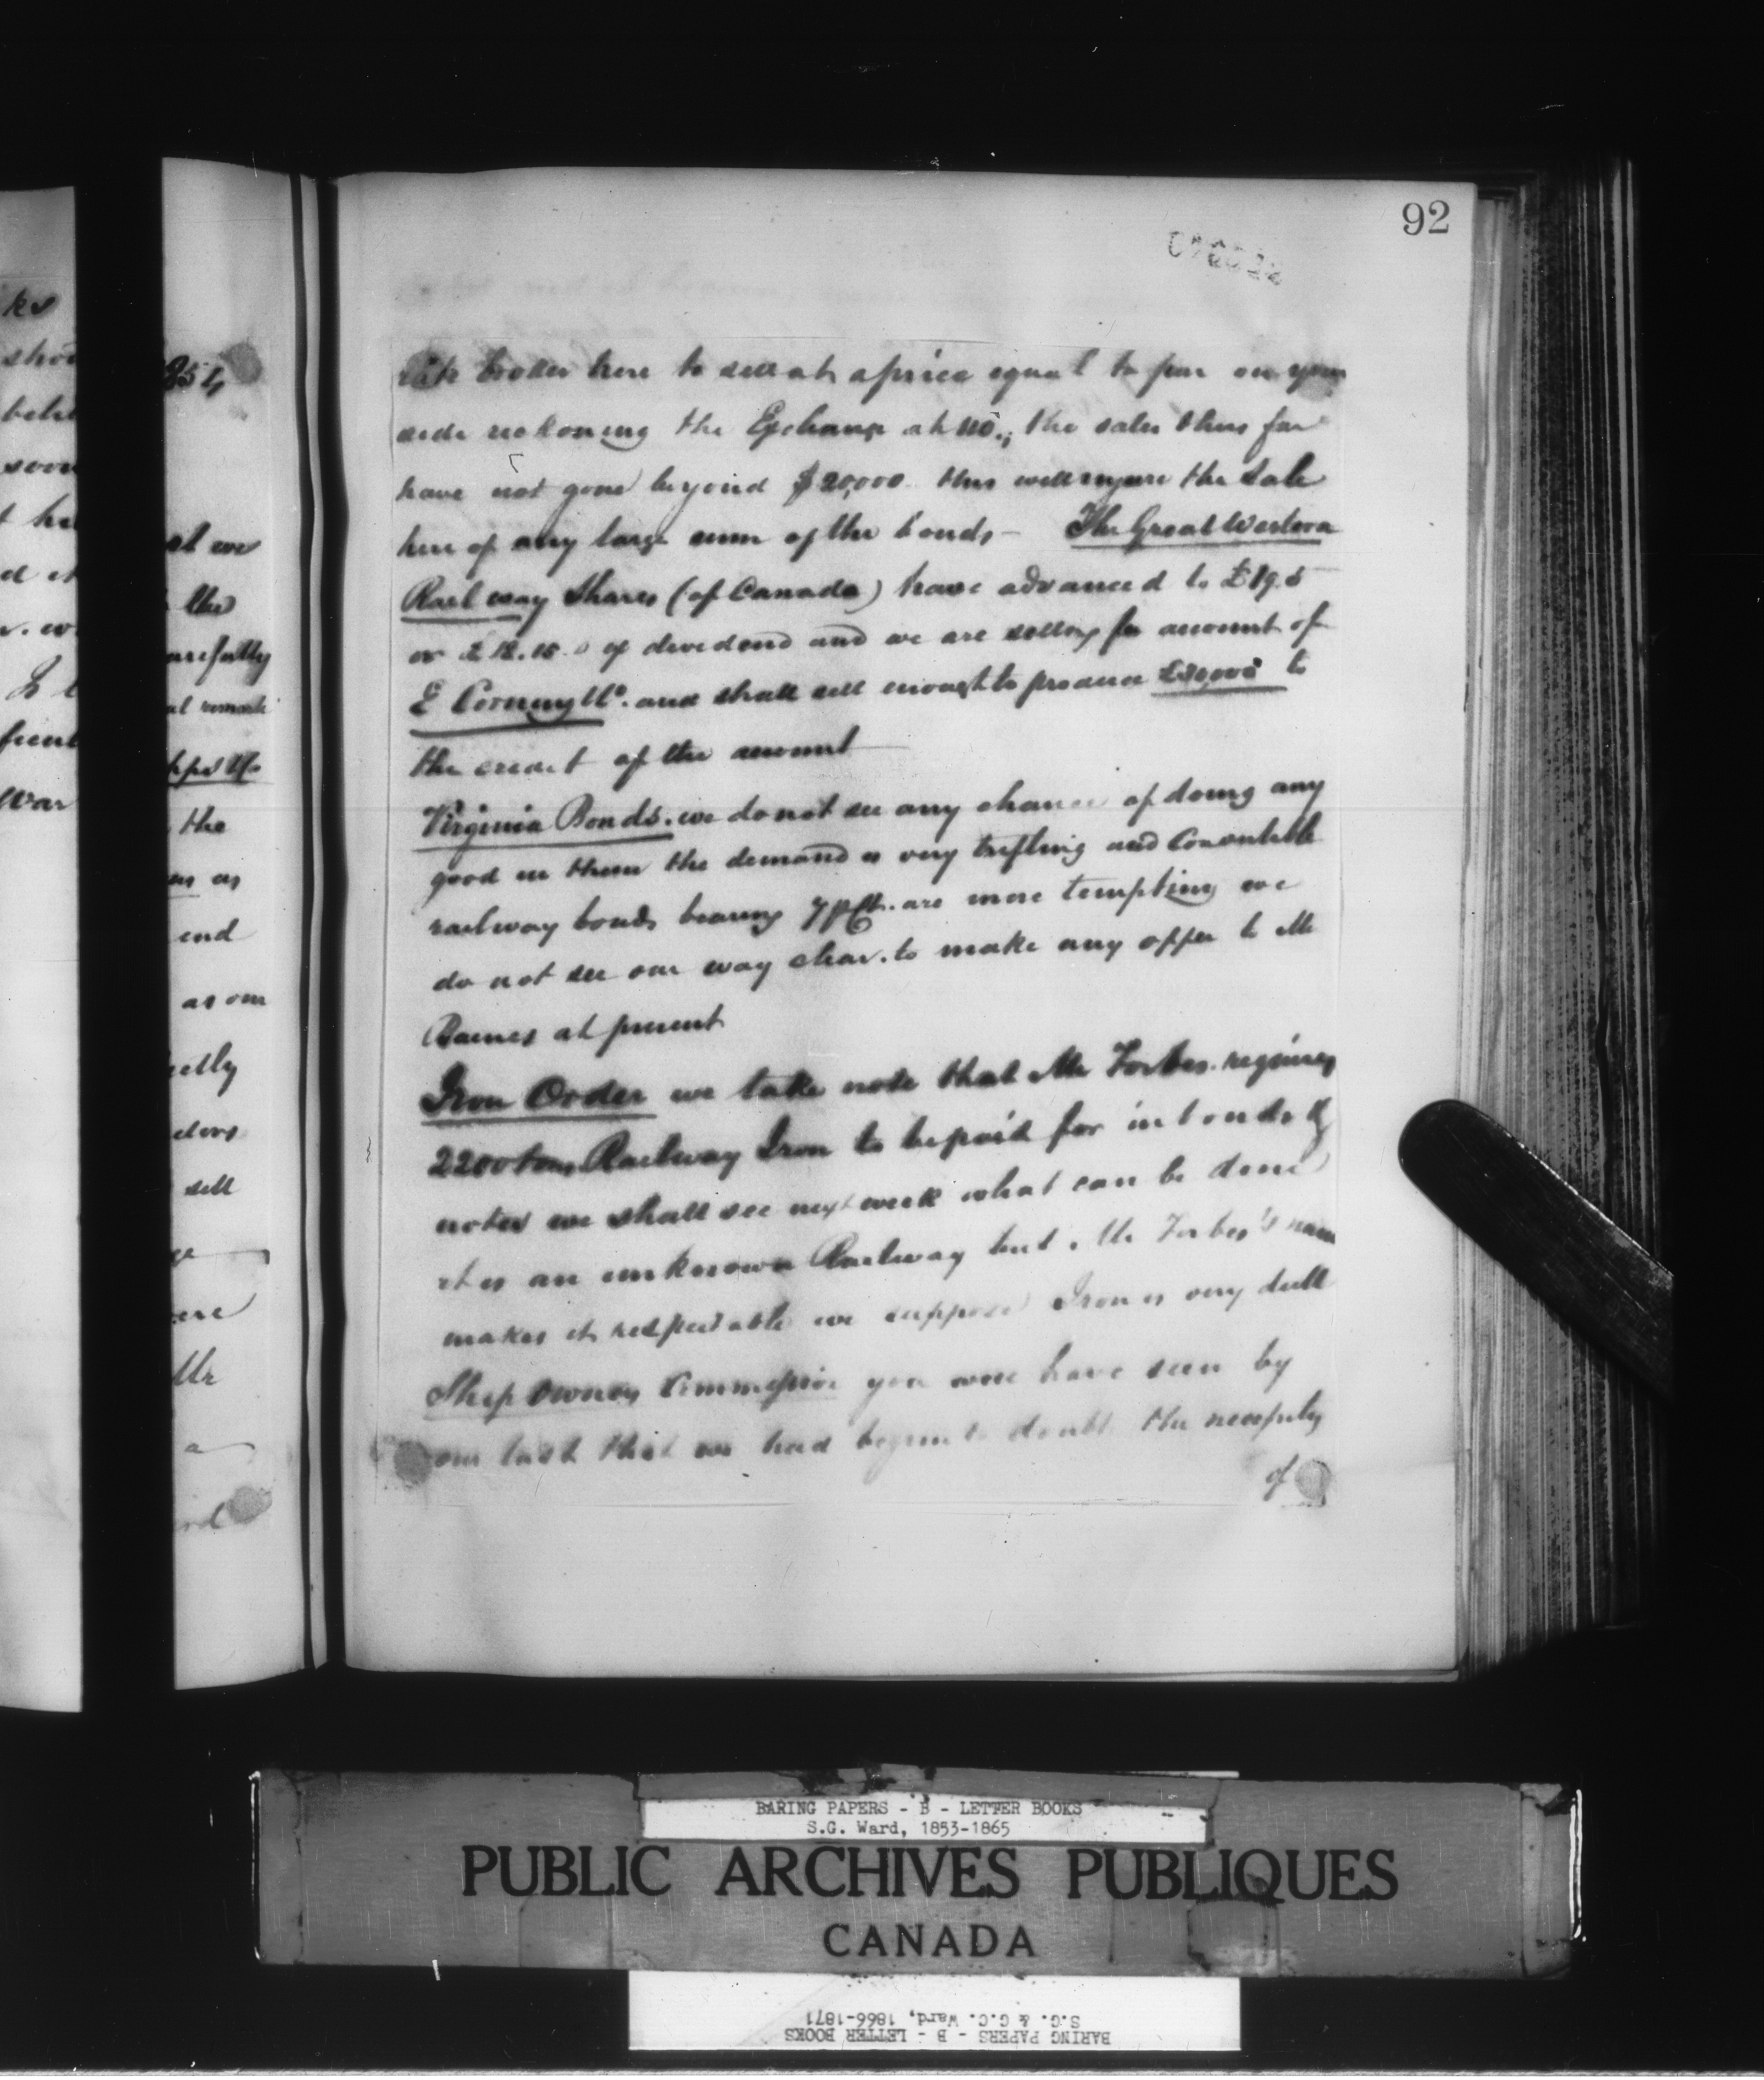 92
ks
shou
behi
soon
t hi
d it
r. w
fient
War
854
at we
the
carefully
al remark
the
as as
end
as our
ectly
sell
ere
Mr
a
broker here to sell at a price equal to par on your
side reckoning the Exchange at 110.; the sales thus far
have not gone beyond $20,000 this will injure the Sale
here of any large sum of the bonds — The Great Western
Railway Shares (of Canada) have advanced to £19.5
or £18.15.0 ex dividend and we are selling for amount of
E Corning & Co. and shall sell enough to produce to
the credit of the amount
Virginia Bonds. we do not see any chance of doing any
good in them the demand is very trifling and Convertible
railway bonds bearing 7 p Ct. are more tempting we
do not see our way clear. to make any offer to Mr
Barnes at present
Iron Order we take note that Mr Forbes requires
2200 tons Railway Iron to be paid for in bonds &
notes we shall see next week what can be done
it is an unknown Railway but Mr Forbes's name
makes it respectable we suppose Iron is very dull
Ship Owners Commission you will have seen by
our last that we had begun to doubt the necessity
of
BARING PAPERS - B - LETTER BOOKS
S.G. Ward, 1853-1865
PUBLIC ARCHIVES PUBLIQUES
CANADA
BARING PAPERS - B - LETTER BOOKS
S.G. & G.C. Ward, 1866-1871